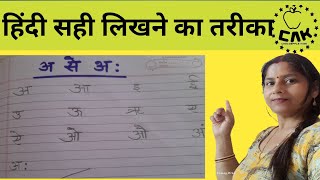 हिंदी सही लिखने का तरीका
CAK
अ से अः
अ आ इ ई
उ ऊ ऋ ए
ऐ ओ औ अं
अः